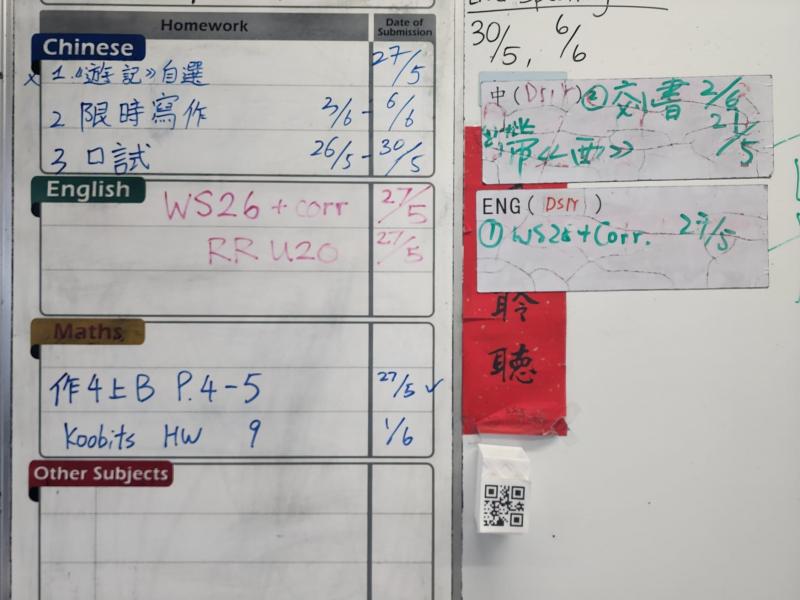 Homework
Date of Submission
Chinese
x 1.《遊記》自選 27/5
2 限時寫作 3/6 - 6/6
3 口試 26/5 - 30/5
English
WS26 + corr 27/5
RR U20 27/5
Maths
作4上B P.4-5 27/5 ✓
Koobits HW 9 1/6
Other Subjects
30/5, 6/6
中(
② 書 2/6
27/5
ENG( DSM )
① WS26 + Corr. 27/5
聆
聽